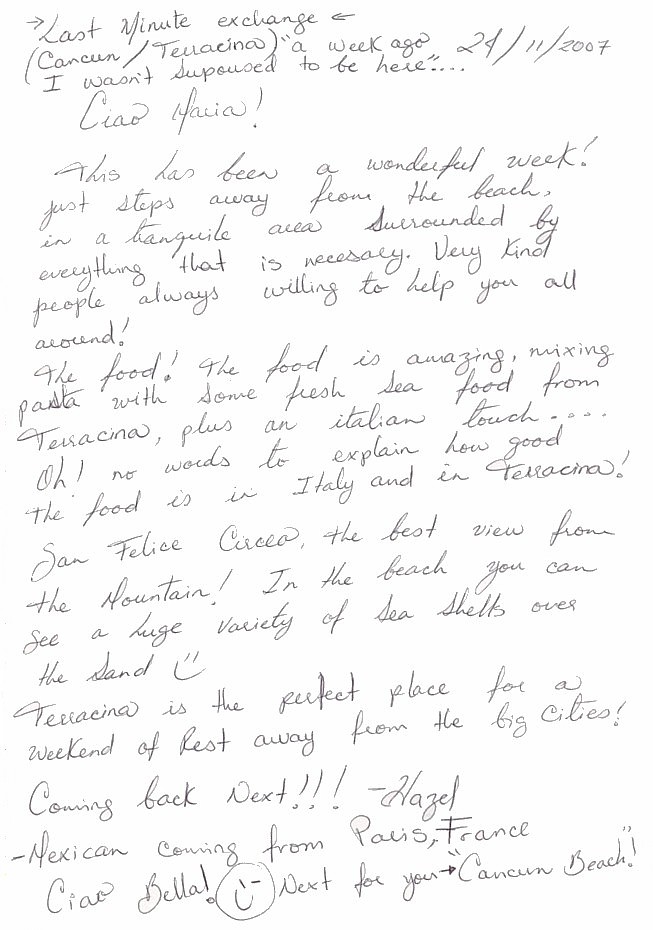 →Last Minute exchange ←
(Cancun/Terracina) "a week ago 24/11/2007
I wasn't supoused to be here"....
Ciao Maria!
This has been a wonderful week!
just steps away from the beach,
in a tranquile area surrounded by
everything that is necesary. Very Kind
people always willing to help you all
around!
The food! The food is amazing, mixing
pasta with some fresh sea food from
Terracina, plus an italian touch....
Oh! no words to explain how good
the food is in Italy and in Terracina!
San Felice Circeo, the best view from
the Mountain! In the beach you can
see a huge variety of sea shells over
the sand :)
Terracina is the perfect place for a
weekend of Rest away from the big cities!
Coming back Next!!! -Hazel
-Mexican coming from Paris, France
Ciao Bella! :) Next for you→"Cancun Beach"!